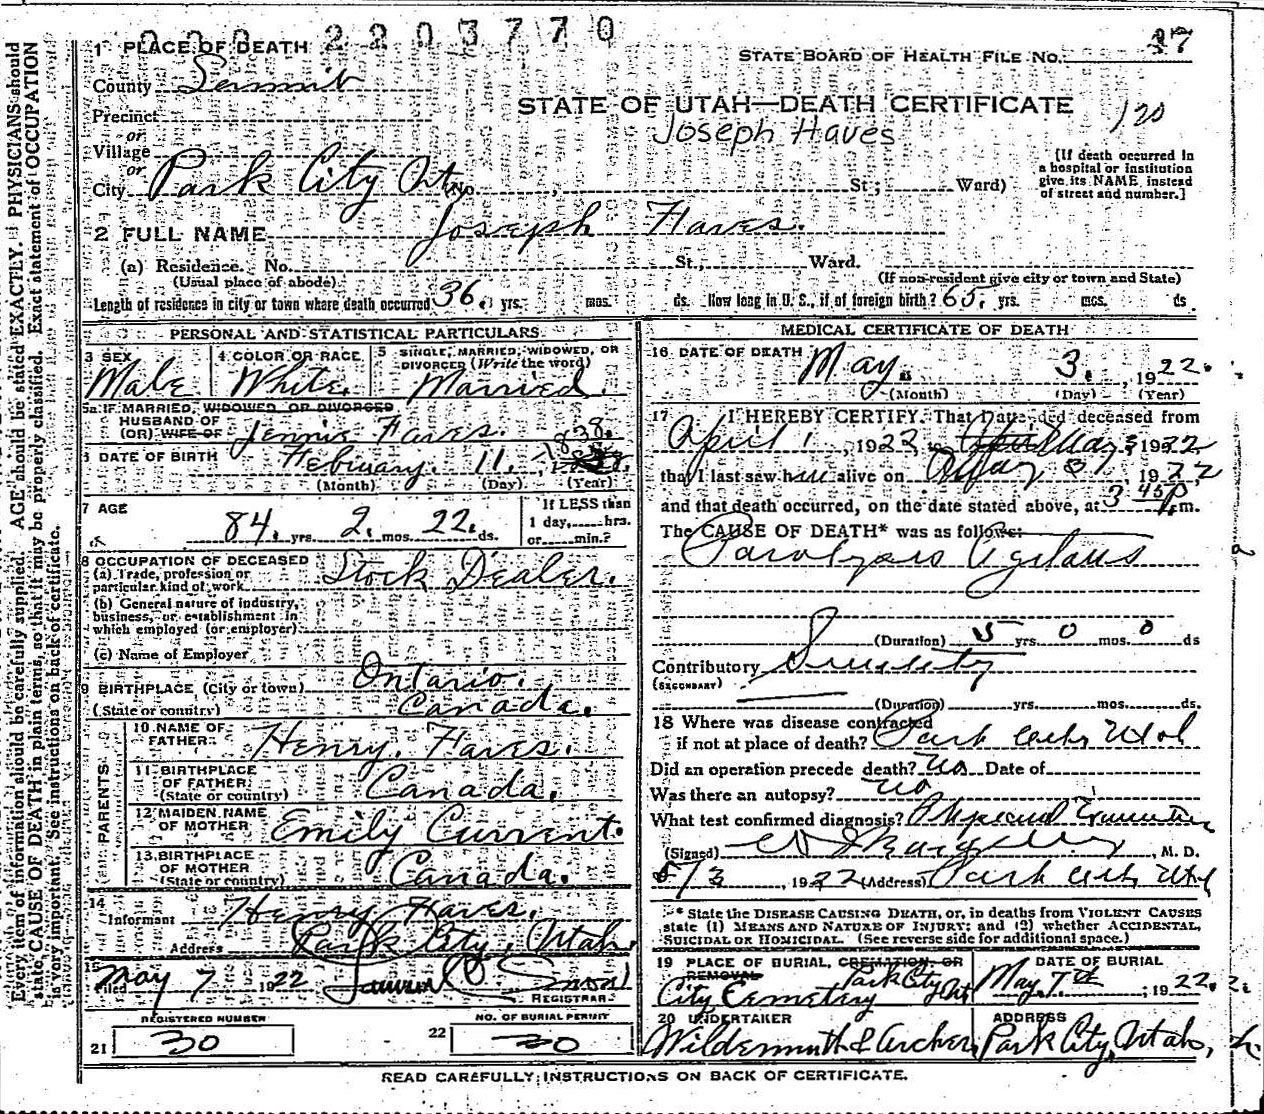 2203770
1 PLACE OF DEATH
STATE BOARD OF HEALTH FILE NO. 37
County Summit
STATE OF UTAH—DEATH CERTIFICATE
120
Precinct
Joseph Haves
or
Village
or
City Park City Ut No. St; Ward)
[If death occurred in
a hospital or institution
give its NAME instead
of street and number.]
2 FULL NAME Joseph Haves.
(a) Residence. No. St., Ward.
(Usual place of abode) (If non-resident give city or town and State)
Length of residence in city or town where death occurred 36. yrs. mos. ds. How long in U. S., if of foreign birth? 65. yrs. mos. ds
PERSONAL AND STATISTICAL PARTICULARS
3 SEX 4 COLOR OR RACE 5 SINGLE, MARRIED, WIDOWED, OR
DIVORCED (Write the word)
Male White. Married.
5a IF MARRIED, WIDOWED OR DIVORCED
HUSBAND OF
(OR) WIFE OF Jennie Haves.
1838.
DATE OF BIRTH February. 11.
(Month) (Day) (Year)
7 AGE 84. yrs. 2. mos. 22. ds.
If LESS than
1 day, hrs.
or min.?
8 OCCUPATION OF DECEASED
(a) Trade, profession or
particular kind of work Stock Dealer.
(b) General nature of industry,
business, or establishment in
which employed (or employer)
(c) Name of Employer
9 BIRTHPLACE (City or town) Ontario.
(State or country) Canada.
PARENTS
10 NAME OF
FATHER Henry. Haves.
11 BIRTHPLACE
OF FATHER
(State or country) Canada.
12 MAIDEN NAME
OF MOTHER Emily Current.
13 BIRTHPLACE
OF MOTHER
(State or country) Canada.
14
Informant Henry Haves.
Address Park City, Utah.
15
Filed May 7 1922
REGISTRAR
REGISTERED NUMBER NO. OF BURIAL PERMIT
21 30 22 30
MEDICAL CERTIFICATE OF DEATH
16 DATE OF DEATH May. 3. , 1922.
(Month) (Day) (Year)
17 I HEREBY CERTIFY, That I attended deceased from
April 1, 1922, to May 3 1922
that I last saw him alive on May 3, 1922
and that death occurred, on the date stated above, at 3 45 P. m.
The CAUSE OF DEATH* was as follows:
Paralysis Agitans
(Duration) 5 yrs 0 mos. 0 ds
Contributory Senility
(SECONDARY)
(Duration) yrs. mos. ds.
18 Where was disease contracted
if not at place of death? Park City Utah
Did an operation precede death? No Date of
Was there an autopsy? No
What test confirmed diagnosis? Physical Examination
(Signed) , M. D.
5/3, 1922 (Address) Park City Utah
* State the DISEASE CAUSING DEATH, or, in deaths from VIOLENT CAUSES
state (1) MEANS AND NATURE OF INJURY; and (2) whether ACCIDENTAL,
SUICIDAL OR HOMICIDAL. (See reverse side for additional space.)
19 PLACE OF BURIAL, CREMATION, OR
REMOVAL
Park City Ut
City Cemetery
DATE OF BURIAL
May. 7th, 1922.
20 UNDERTAKER
Wildermuth & Archer,
ADDRESS
Park City, Utah,
READ CAREFULLY INSTRUCTIONS ON BACK OF CERTIFICATE.
Every item of information should be carefully supplied. AGE should be stated EXACTLY. PHYSICIANS should
state CAUSE OF DEATH in plain terms, so that it may be properly classified. Exact statement of OCCUPATION
is very important. See instructions on back of certificate.